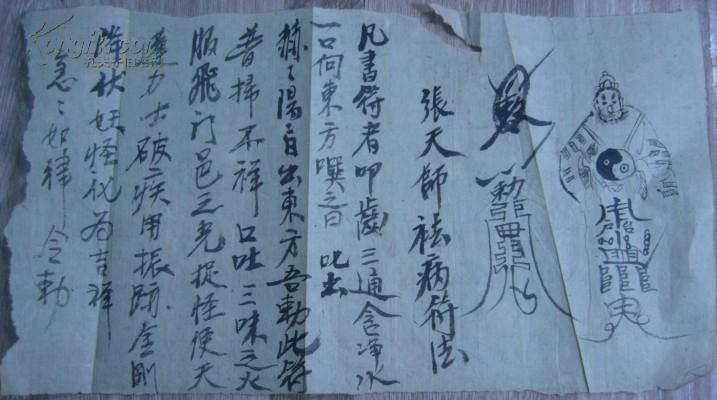 張天師祛病符法
凡書符者叩齒三通含淨水
一口向東方噀之曰 叱出
赫〻陽日出東方吾勅此符
普掃不祥口吐三味之火
服飛门邑之光捉怪使天
蓬力士破疾用振跡金剛
降伏妖怪化為吉祥
急〻如律 令勅